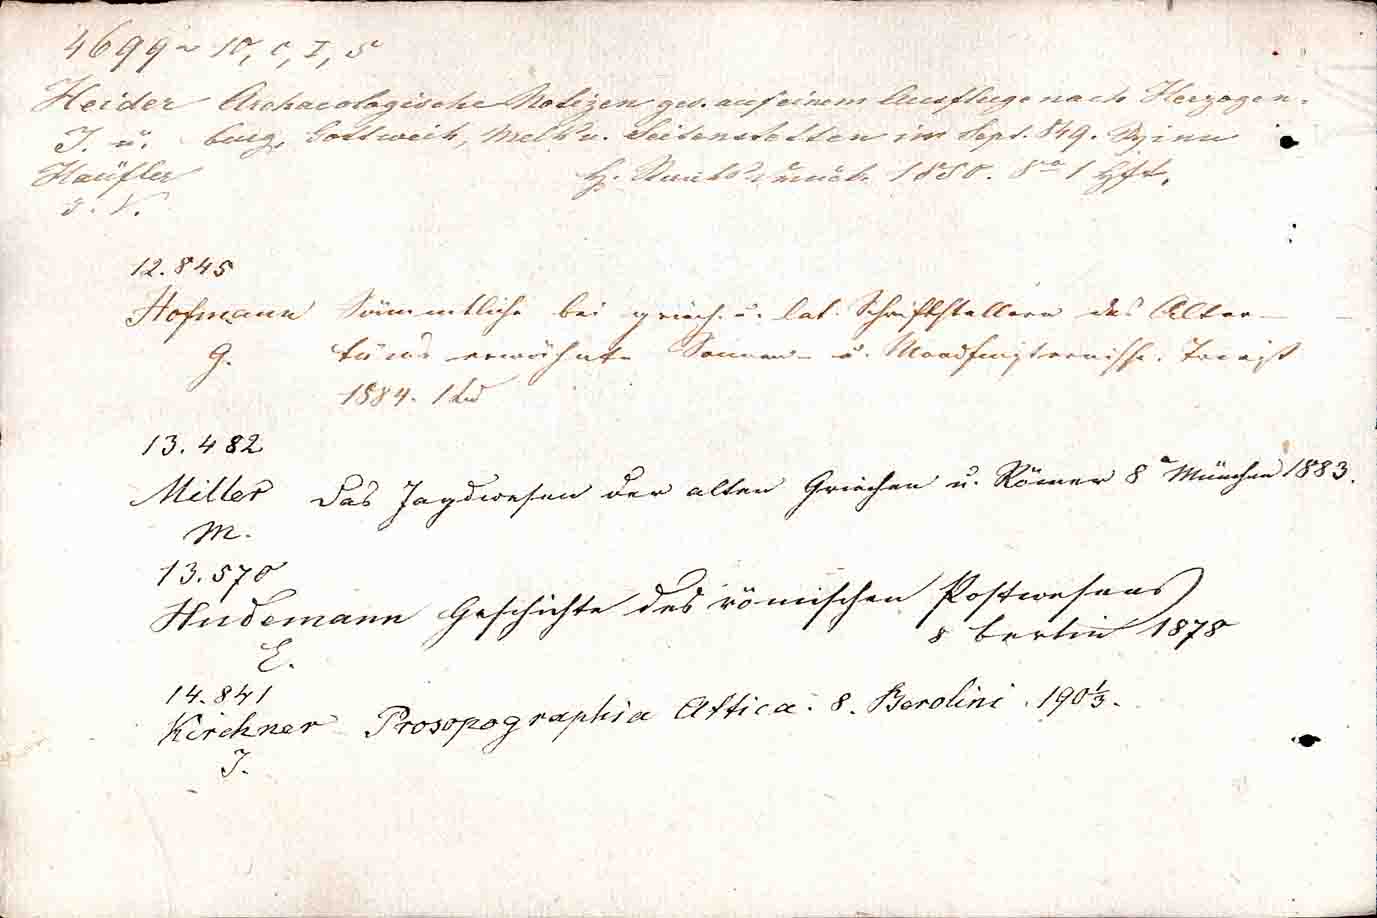 4699 ~ 10, c, I, 5
Heider Archaeologische Notizen ges. auf einem Ausfluge nach Herzogen-
J. u. burg, Gottweih, Melk u. Seitenstetten im Sept. 849.
Häufler 1850. 8° 1 Hft.
J. V.
12.845
Hofmann Sämmtliche bei griech. u. lat. Schriftstellern des Alter-
G. tums erwähnte Sonnen- u. Mondfinsternisse. Triest
1884. 1 Bd
13.482
Miller Das Jagdwesen der alten Griechen u. Römer 8° München 1883.
M.
13.570
Hudemann Geschichte des römischen Postwesens
E. 8 Berlin 1878
14.841
Kirchner Prosopographia Attica. 8. Berolini. 190 1/3.
J.